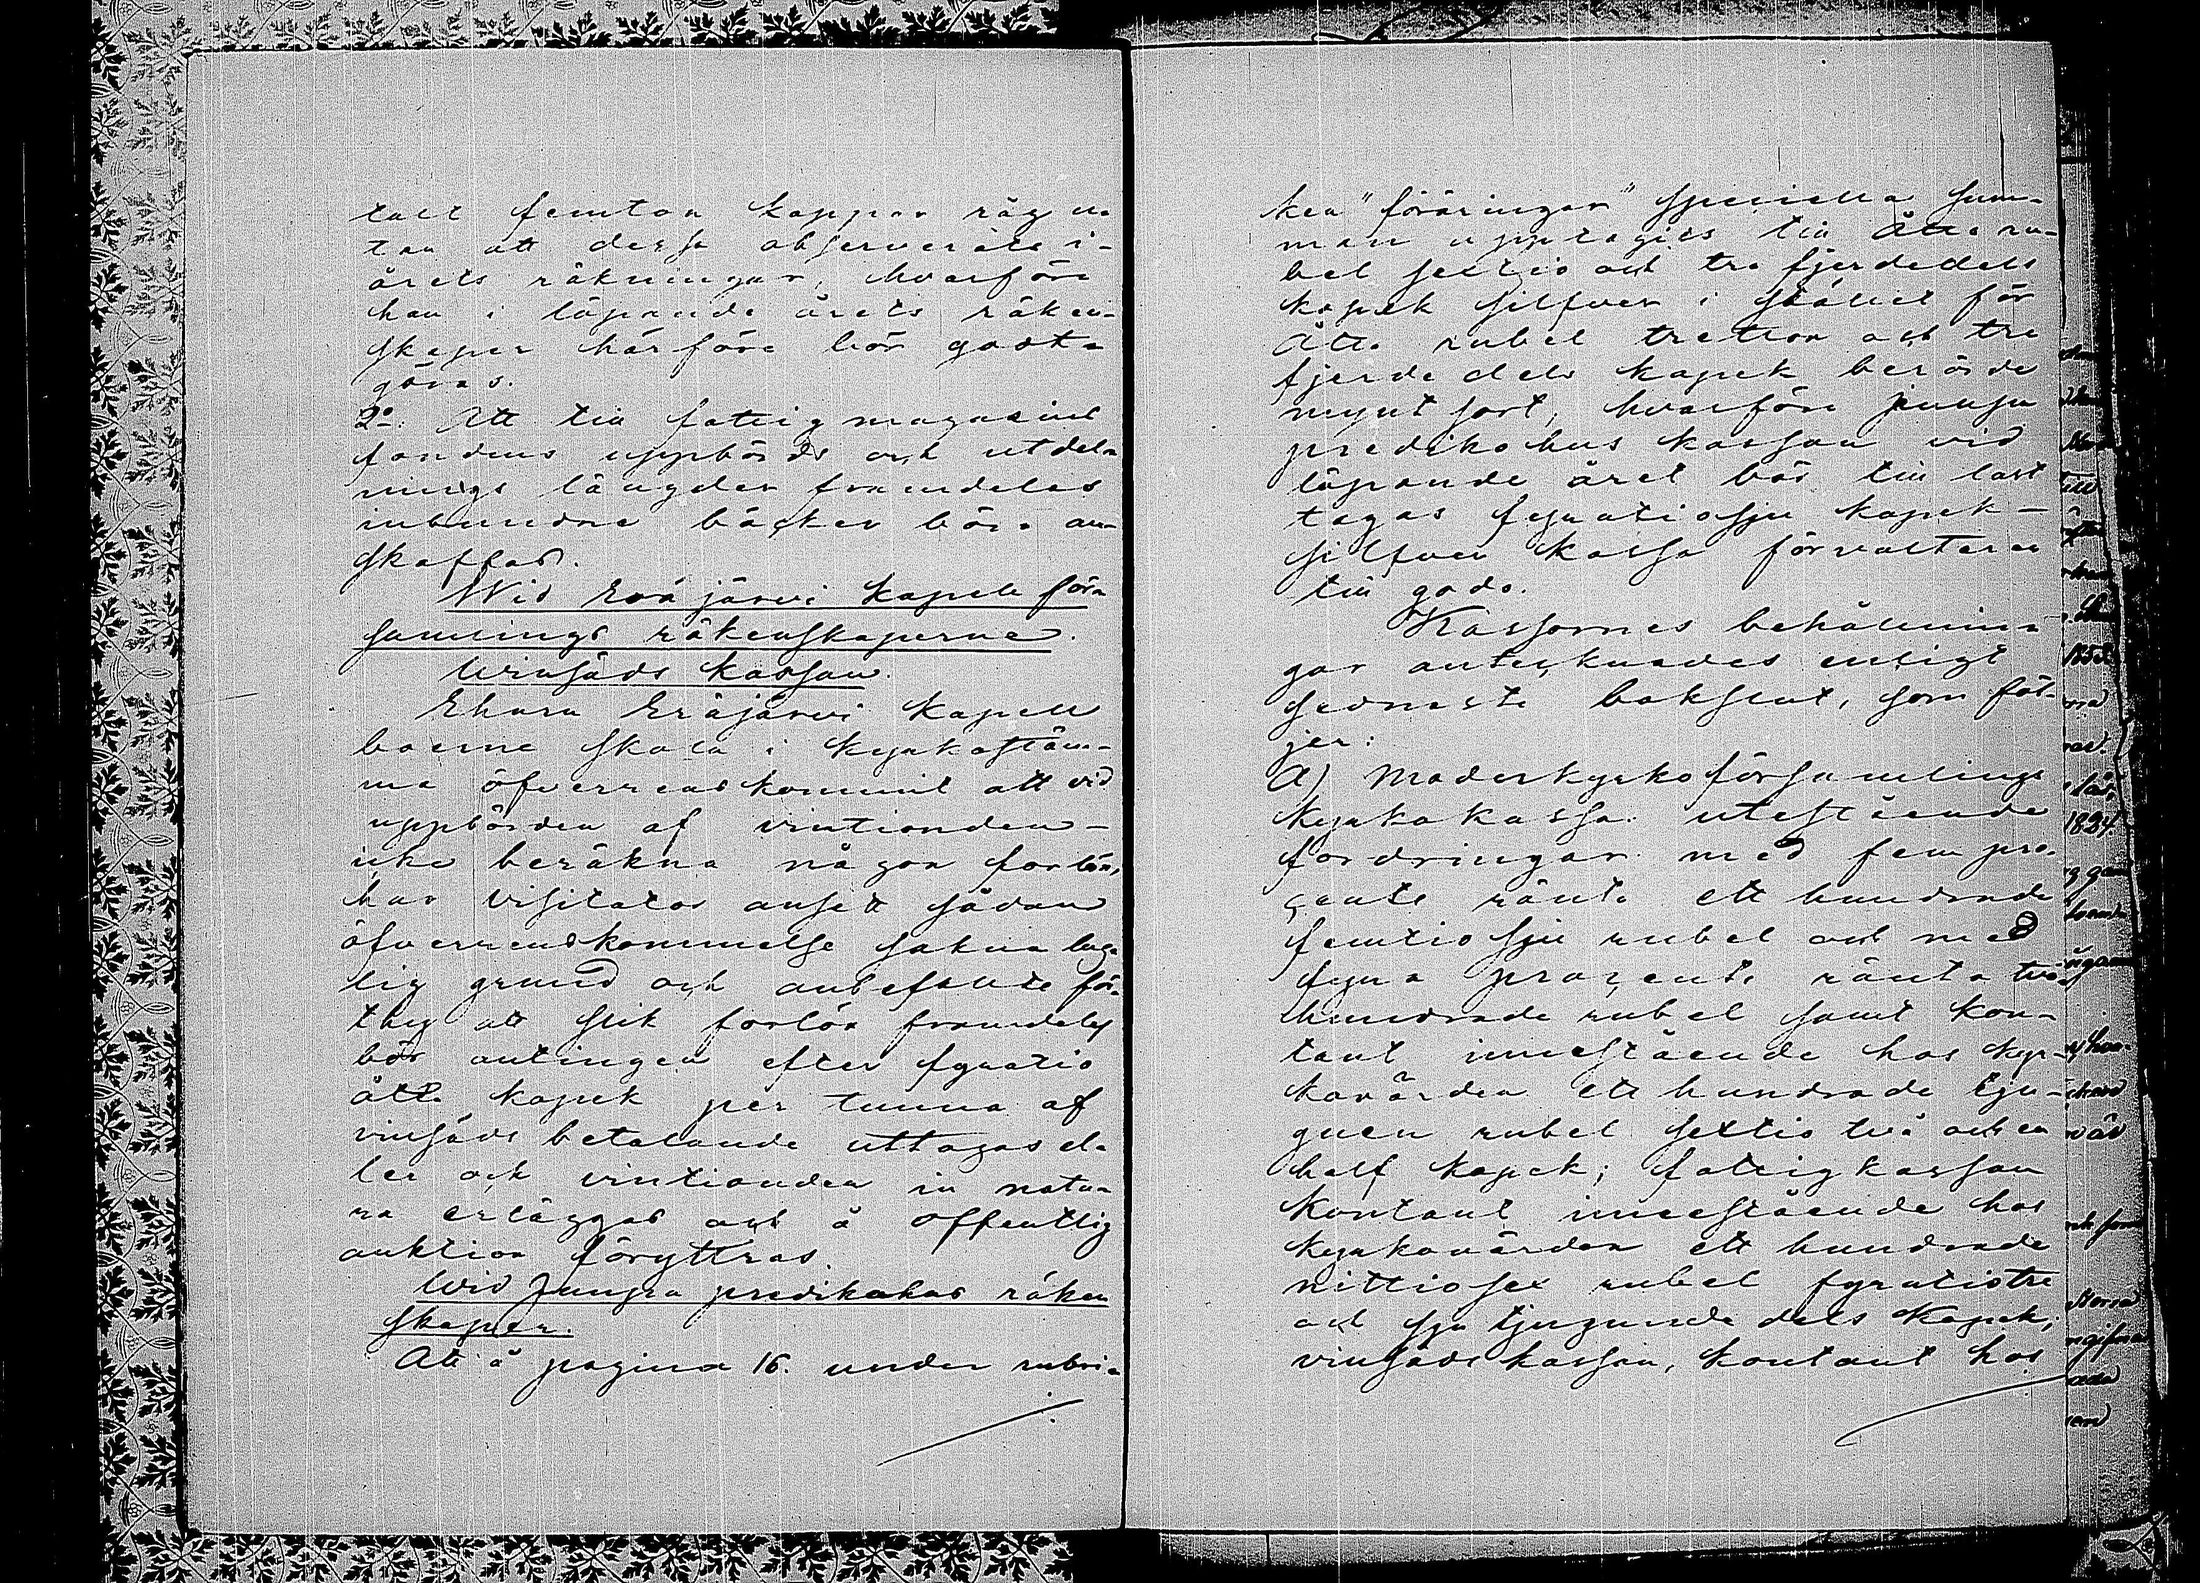 talt femton kappar råg u-
tan att dessa observerats i
årets räkningar, hvarföre
han i löpande årets räken-
skaper härföre bör godt-
göras.
2o. Att till fattigmagasins
fondens uppbörds och utdel-
nings längder framdeles
inbundne böcker böra an-
skaffas.
Wid Eräjärvi kapell för-
samlings räkenskaperne.
Vinsäds kassan.
Ehuru Eräjärvi kapell
boerne skola i kyrkostäm-
ma öfverenskommit att vid
uppbörden af vintionden
icke beräkna någon forlön,
har visitator ansett sådan
öfverenskommelse sakna lag-
lig grund och anbefallte för-
thy att slik forlön framdeles
bör antingen efter fyratio
åtta kopek per tunna af
vinsäds betalande uttagas el-
ler och vintionden in natu-
ra erläggas och å offentlig
auktion föryttras.
Wid Juupa predikohus räken
skaper.
Att å pagina 16. under rubri-
ken "föräringar" speciella sum-
man upptagits till Åtta ru-
bel sextio och tre fjerdedels
kopek silfver i stället för
Åtta rubel tretton och tre
fjerdedels kopek berörde
myntsort, hvarföre
predikohus kassan vid
löpande året bör till last
tagas fyratiosju kopek
silfver kassa förvaltaren
till godo.
Kassornes behållnin-
gar antecknades enligt
sednaste bokslut, som föl-
jer:
a) Moderkyrkoförsamlings
kyrkokassa: utestående
fordringar med fem pro-
cents ränta ett hundrade
femtiosju rubel och med
fyra procents ränta två
hundrade rubel samt kon-
tant innestående hos kyr-
kovärden ett hundrade tju-
guen rubel sextio två och en
half kopek; fattigkassan
kontant innestående hos
kyrkovärden ett hundrade
nittiosex rubel fyratiotre
och sju tjugundedels kopek;
vinsäds kassan, kontant hos